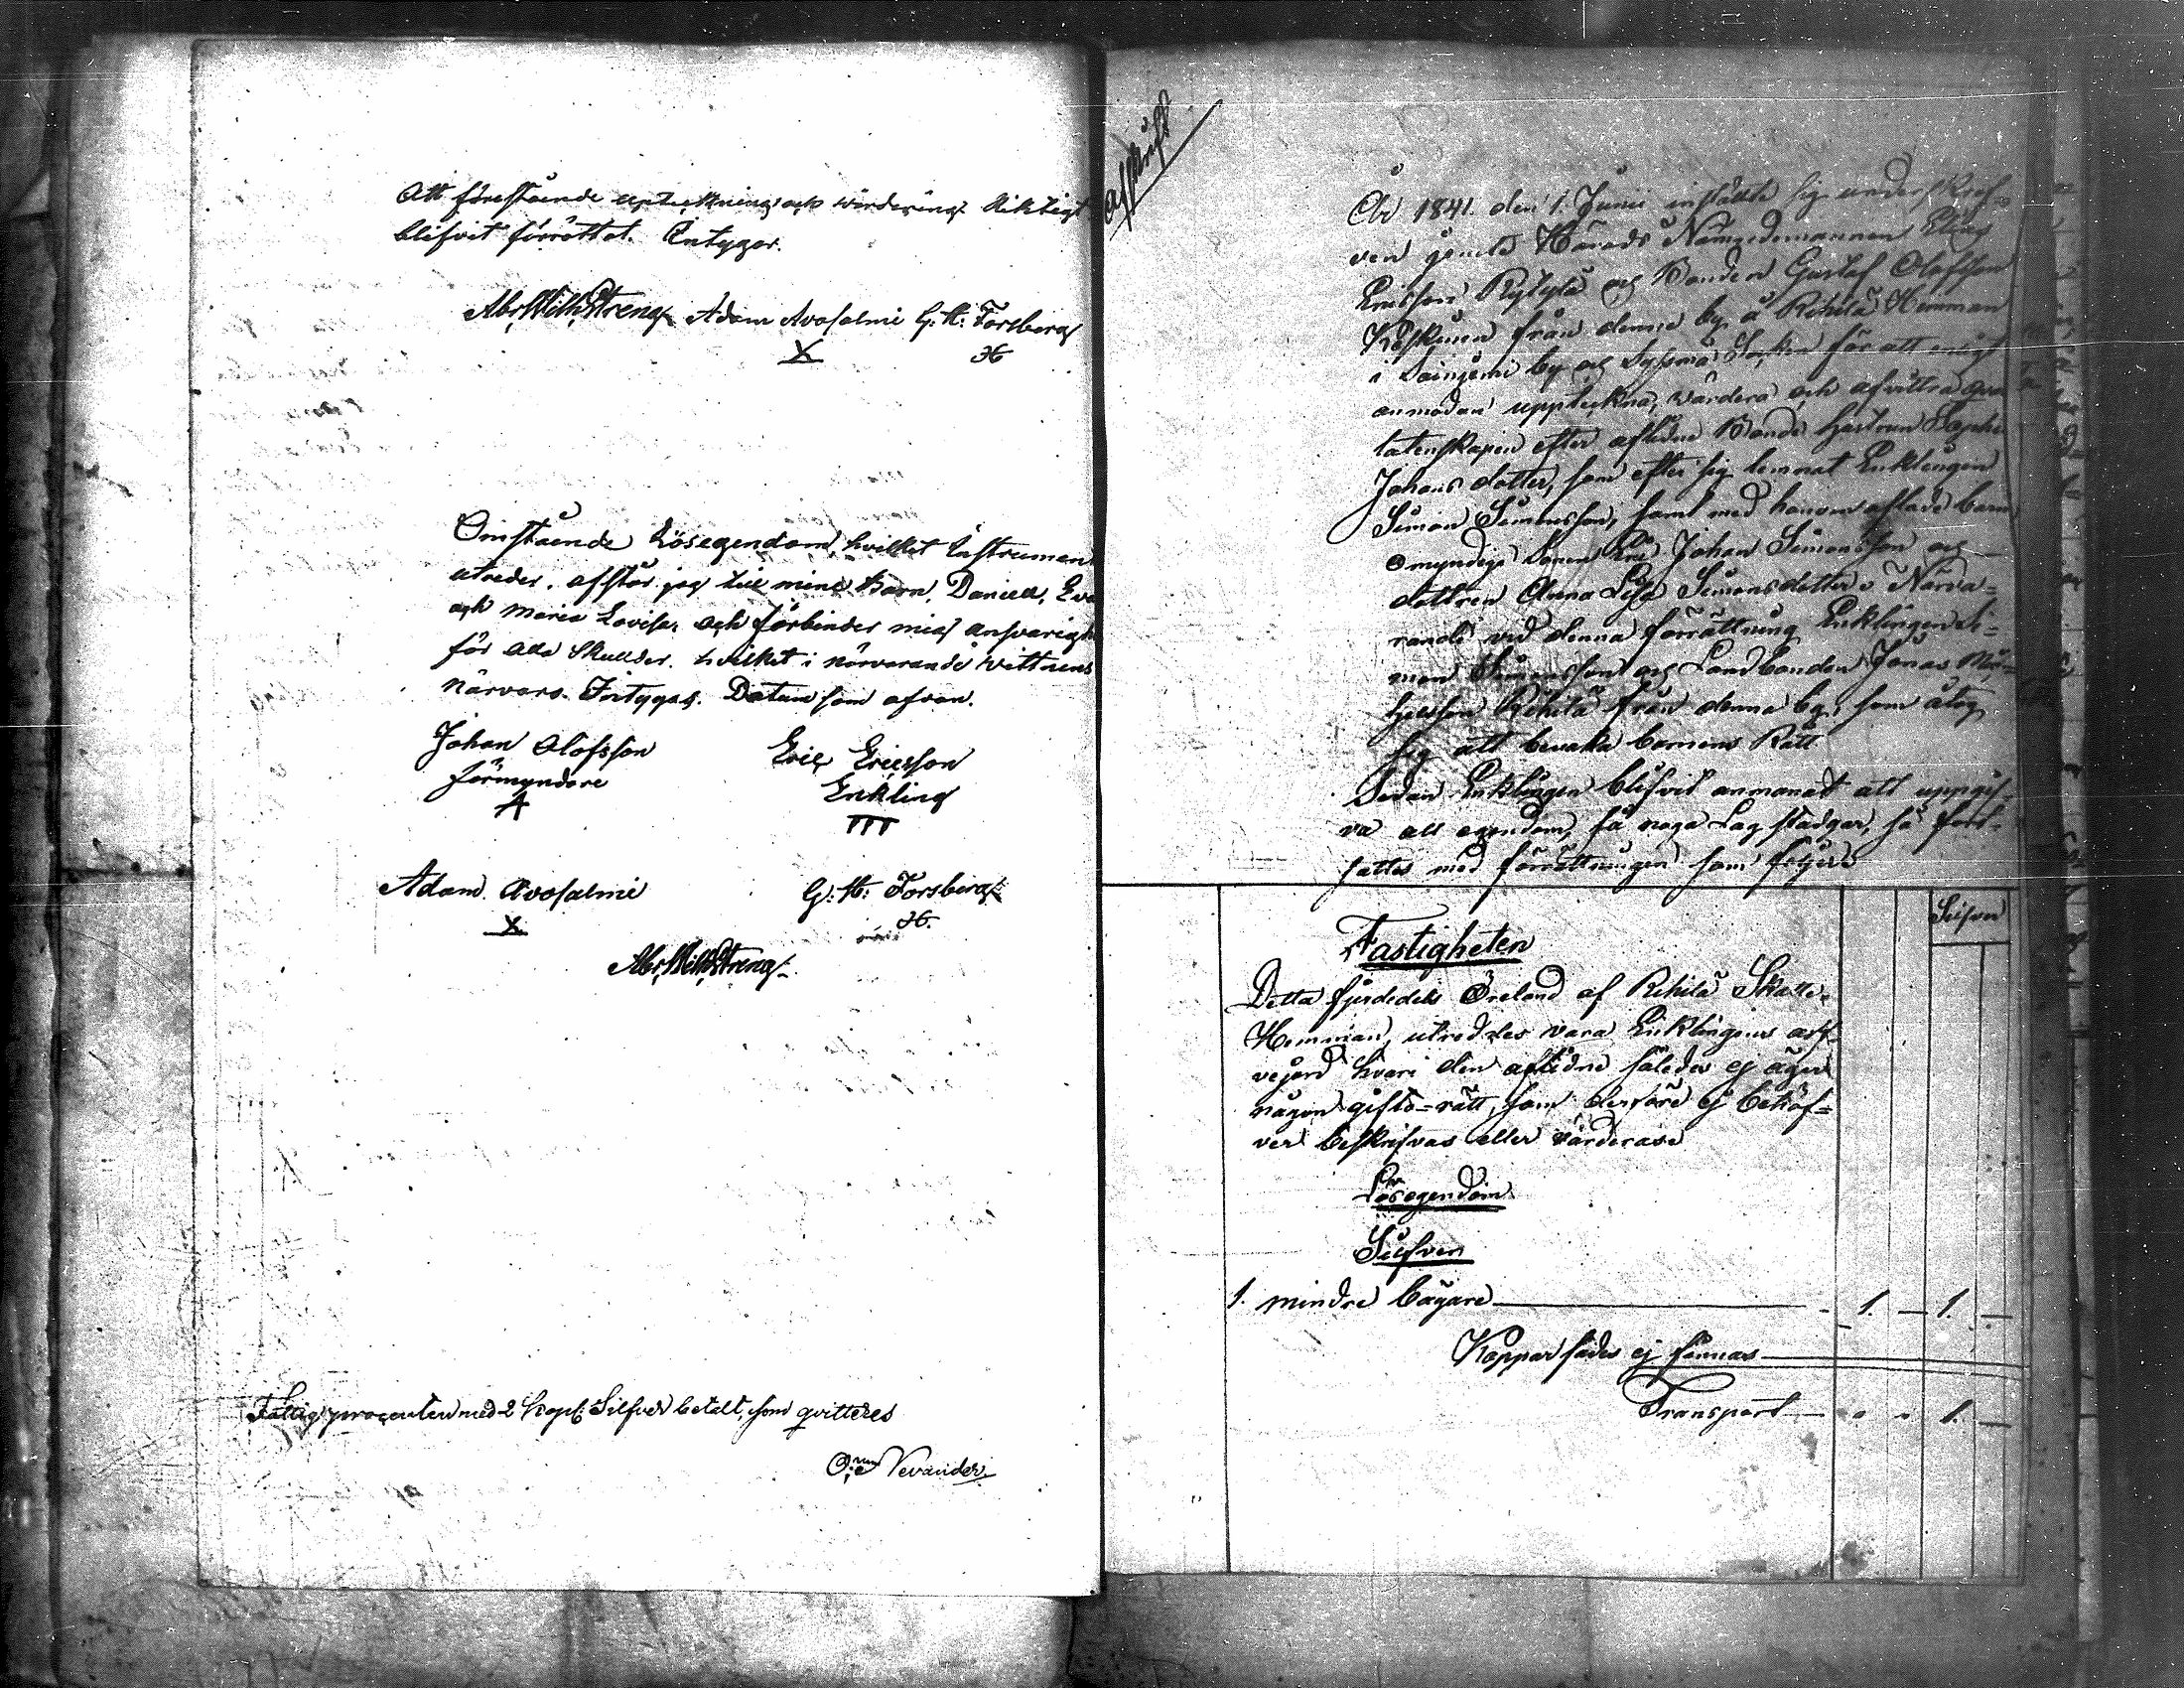 Att förestående upteckning och värdering Riktigt
blifvit förrättat. Intygar.
Abr. Wilh. Streng. Adam Avosalmi G. H: Forsberg
X H
Omstående Lösegendom, hvilket Instrument
utreder, afstår jag till mina Barn, Daniell, Eva
och Maria Lovisa, och förbinder mig ansvarig
för alla Skullder. hvilket i närvarande wittnens
närvaro. Intygas. Datum som ofvan.
Johan Olofsson Eric Ericsson
förmyndare Enkling
A TTT
Adam Avosalmi G: H: Forsberg
X H.
Abr. Wilh. Streng.
Fattigprocenten med 2 kop: Silfver betalt, som qvitteres
Nevander
Afskrift
År 1841. den 1. Junii instälte sig underskref-
ven jemte Härads Nämndemannen Elias
Ericsson Rytylä og Bonden Gustaf Olofsson
Koskinen från denne by, å Rihilä Hemman
i Soinjemi by og Sysmä Socken för att enligt
anmodan uppteckna, värdera och afvittra qvar
latenskapen efter aflidne Bonde hustrun Sophia
Johans dotter, som efter sig lemnat Enklingen
Simon Simonsson, samt med honom aflade barn
omyndige Sonen Johan Simonsson og
dottren Anna Lisa Simonsdotter. Närva=
rande vid denna förrättning Enklingen Si=
mon Simonsson og Landbonden Jonas
Rihilä från denna by, som åtog
sig att bevaka barnens Rätt
Sedan Enklingen blifvit anmanat att uppgif-
va all egendom, så noga Lag stadgar, så fort-
sattes med förrättningen som följer
Silfver
Fastigheten
Detta fjerdedels Öreland af Rihilä Skatte-
Hemman, utreddes vara Enklingens arf-
vejord hvari den aflidne således ej äger
någon gifto=rätt, som derföre ej behöf=
ver beskrifvas eller värderas
Lösegendom
Silfver
1. mindre bägare — 1. — 1. —
Koppar sades ej finnas
Transport — " " 1. —